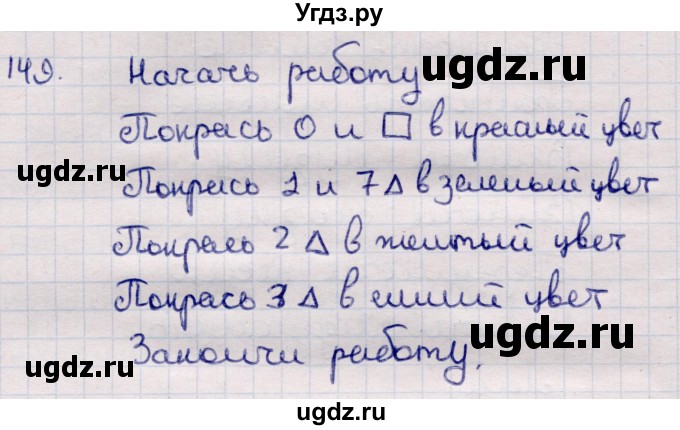 Угдз.ру
149. Начать работу
Покрась О и □ в красный цвет
Покрась 1 и 7 △ в зеленый цвет
Покрась 2 △ в желтый цвет
Покрась 3 △ в синий цвет
Закончи работу.
ugdz.ru
ugdz.ru
ugdz.ru
ugdz.ru
ugdz.ru
ugdz.ru
ugdz.ru